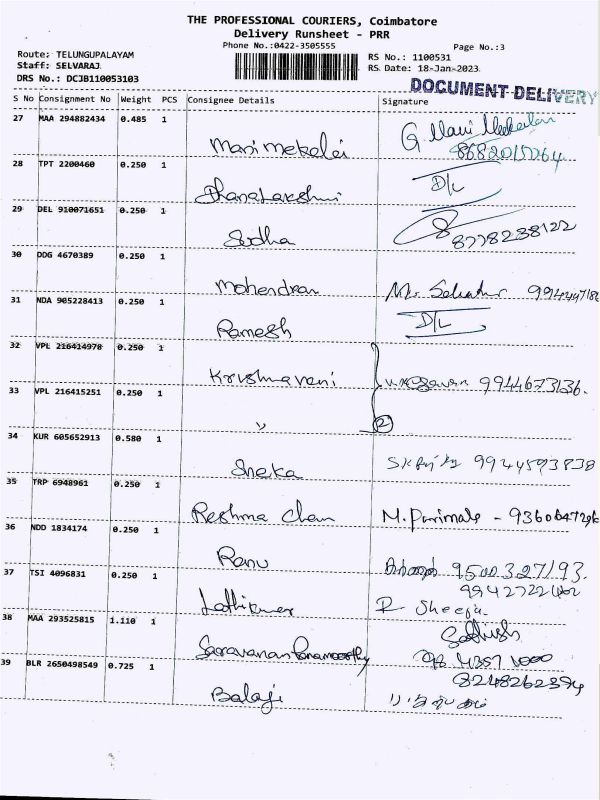 THE PROFESSIONAL COURIERS, Coimbatore
Delivery Runsheet - PRR
Phone No.:0422-3505555
Page No.:3
Route: TELUNGUPALAYAM
Staff: SELVARAJ
DRS No.: DCJB110053103
RS No.: 1100531
RS Date: 18-Jan-2023
DOCUMENT DELIVERY
S No Consignment No Weight PCS Consignee Details Signature
27 MAA 294882434 0.485 1
Manimekalai
8682015064
28 TPT 2200460 0.250 1
Dhanalakshmi D/L
29 DEL 910071651 0.250 1
Sudha 8778238122
30 DDG 4670389 0.250 1
Mohendran
31 NDA 905228413 0.250 1
Ramesh D/L
32 VPL 216414978 0.250 1
Krishnaveni 9944673136.
33 VPL 216415251 0.250 1
" 2
34 KUR 605652913 0.580 1
Sneka 9944593838
35 TRP 6948961 0.250 1
Reshma M. Parimala - 9360647296
36 NDD 1834174 0.250 1
Ranu 9500327193.
37 TSI 4096831 0.250 1
R Sheeja
38 MAA 293525815 1.110 1
Sathish
98 4357 1000
39 BLR 2650498549 0.725 1
8248262394
Balaji